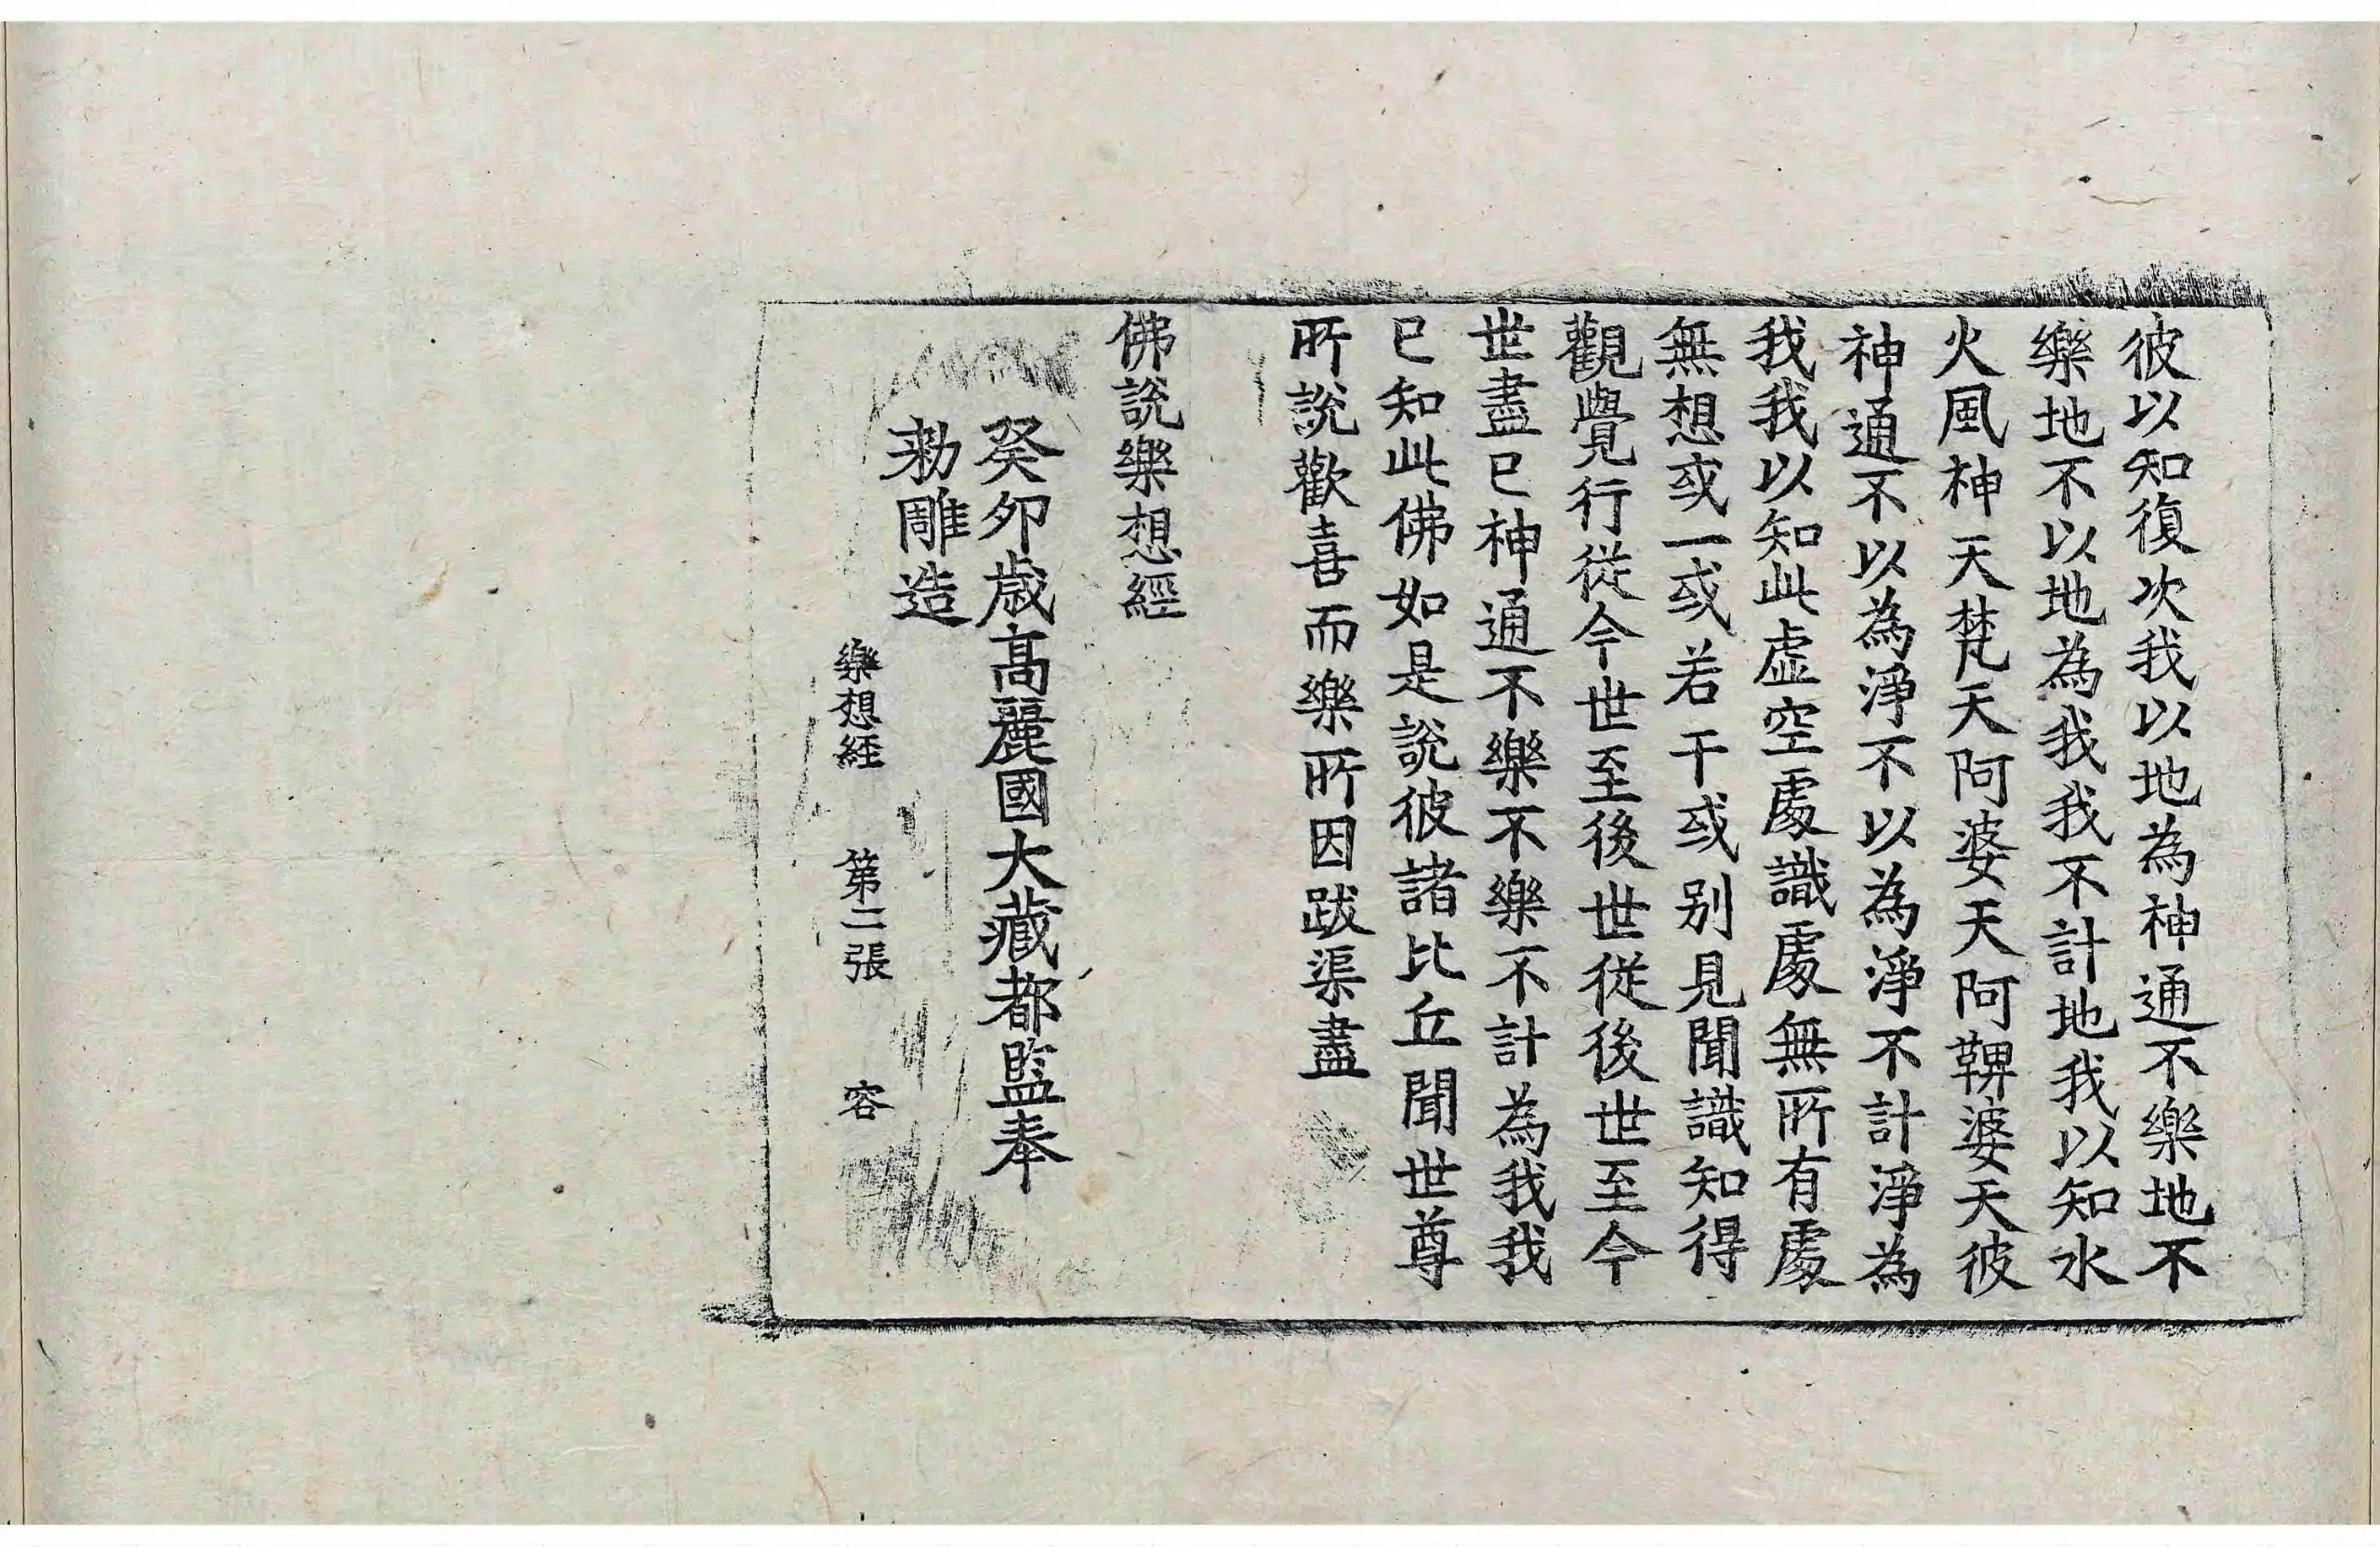 彼以知復次我以地為神通不樂地不
樂地不以地為我我不計地我以知水
火風神天梵天阿婆天阿鞞婆天彼
神通不以為淨不以為淨不計淨為
我我以知此虛空處識處無所有處
無想或一或若干或别見聞識知得
觀覺行從今世至後世從後世至今
世盡已神通不樂不樂不計為我我
已知此佛如是說彼諸比丘聞世尊
所說歡喜而樂所因跋渠盡
佛說樂想經
癸卯歲高麗國大藏都監奉
勑雕造
樂想經 第二張 容